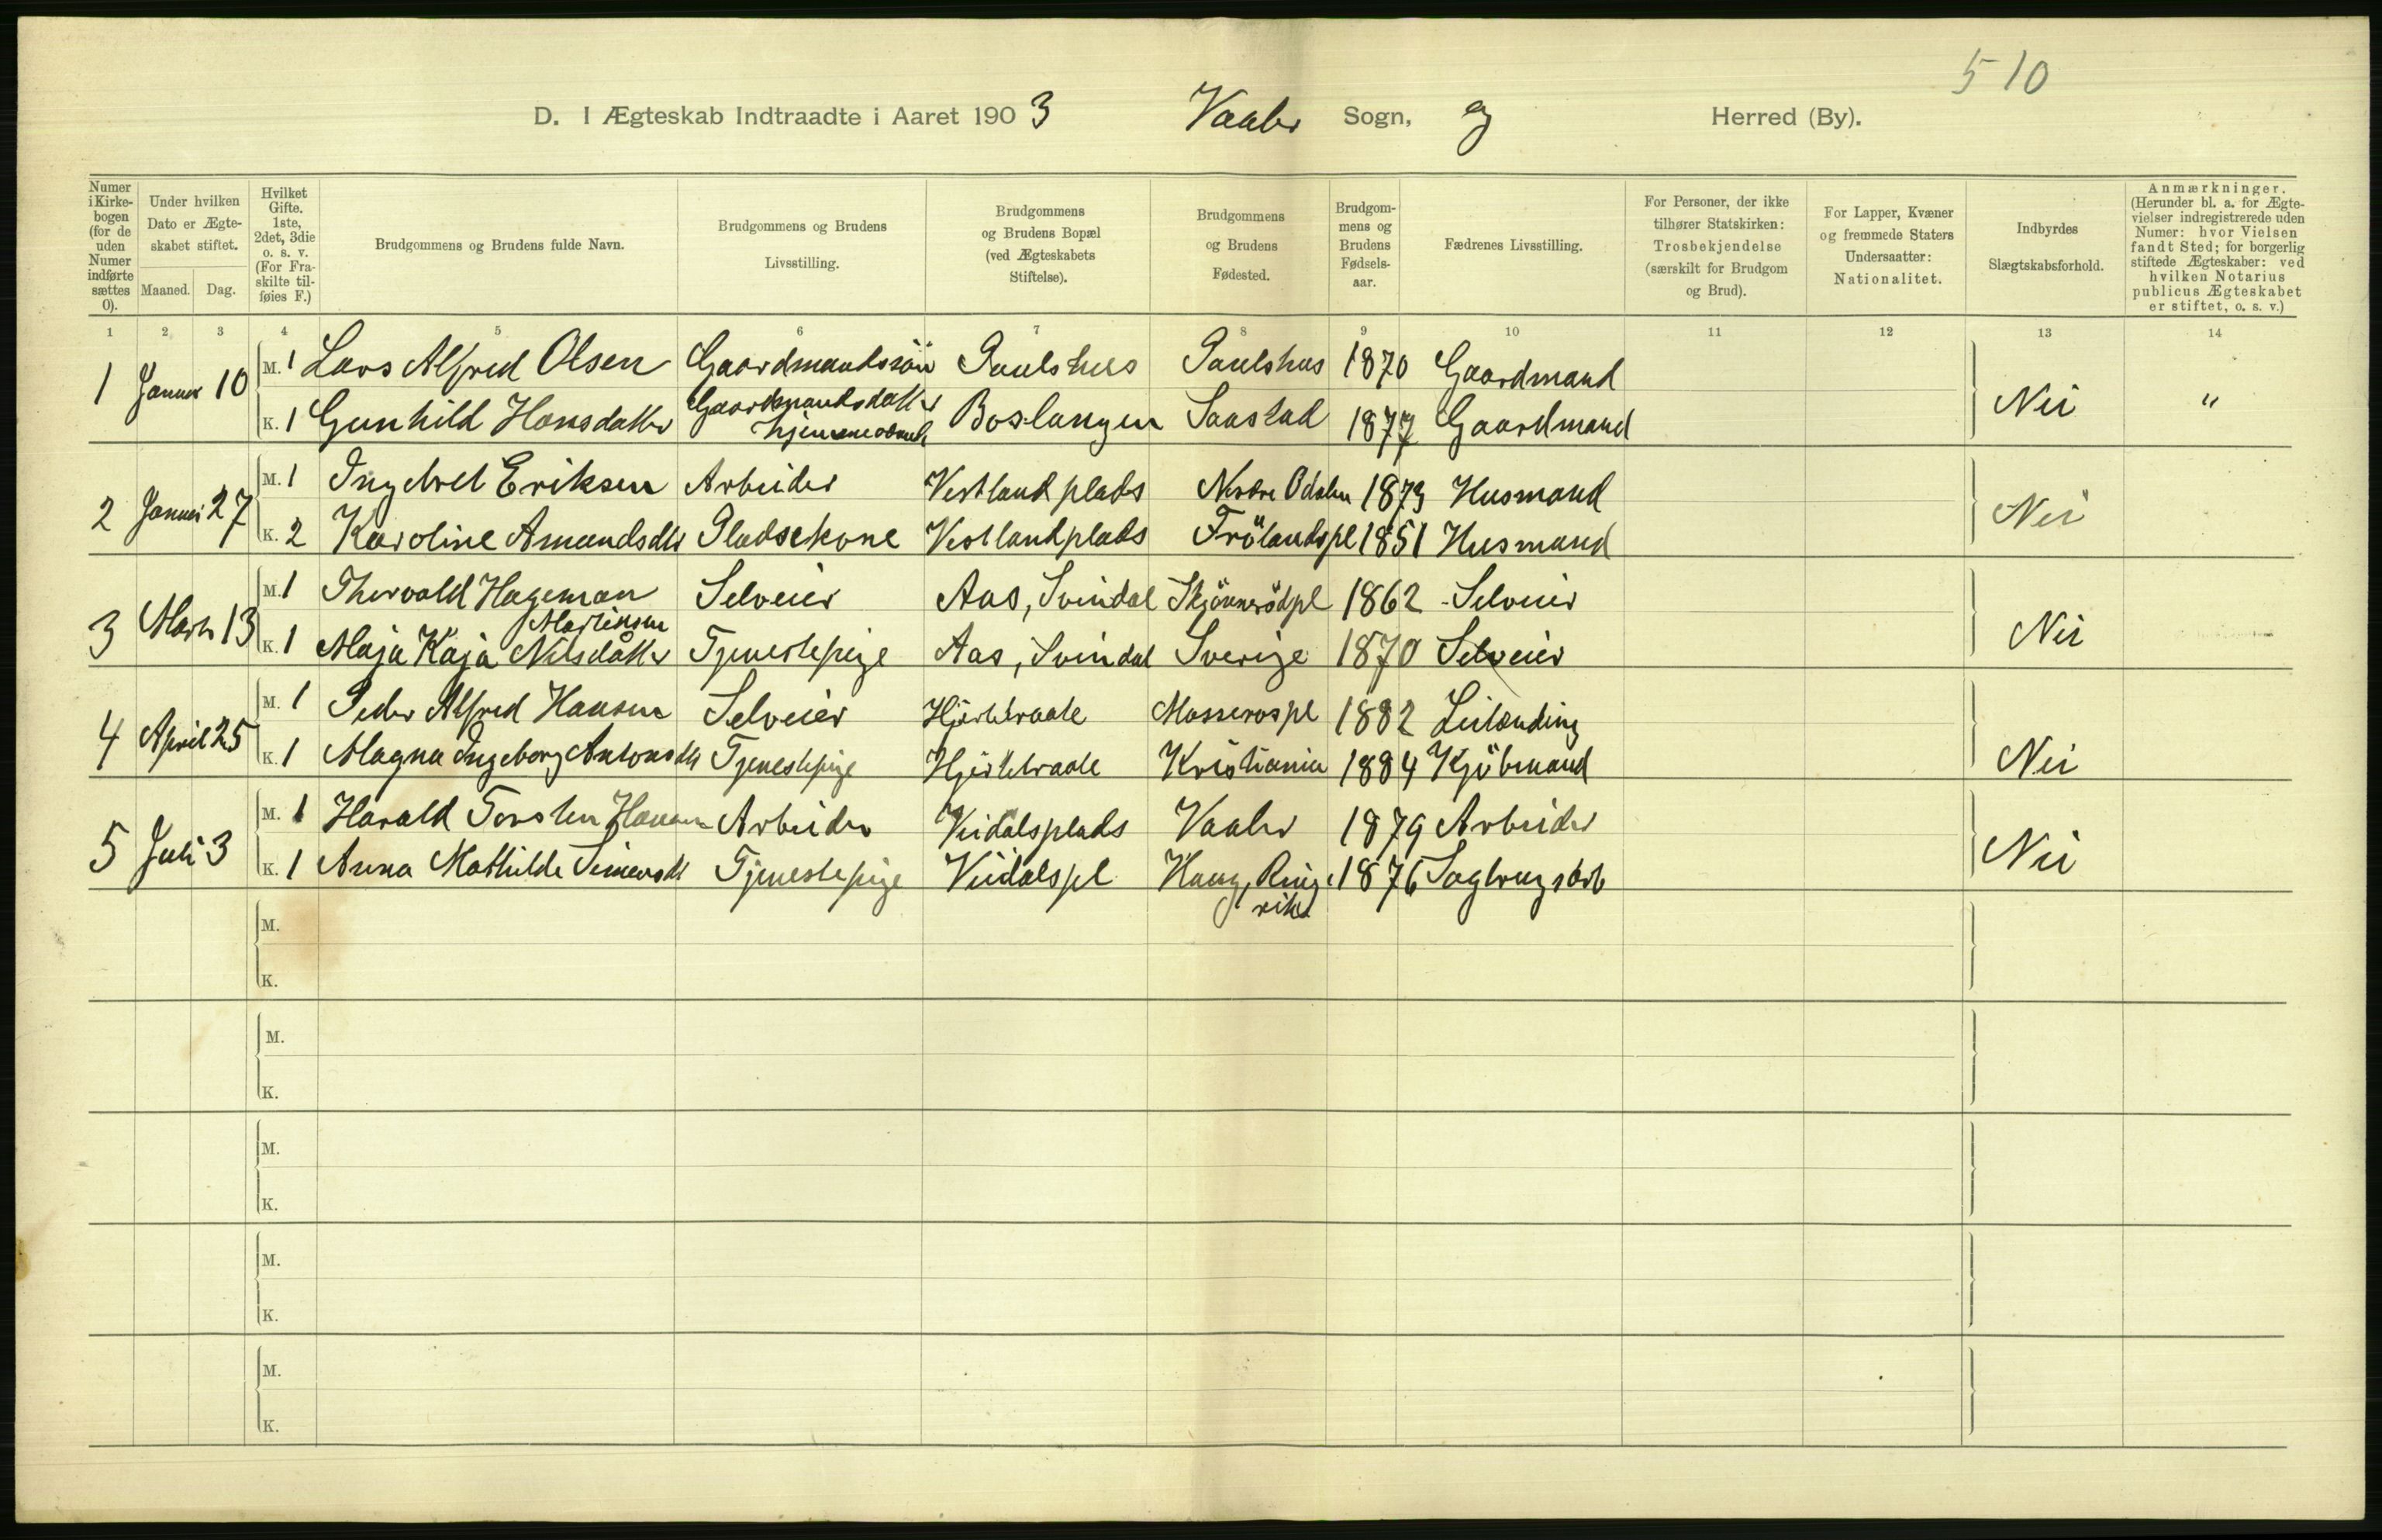 510
D. I Ægteskab Indtraadte i Aaret 1903 Vaaler Sogn, og Herred (By).
Numer i Kirkebogen (for de uden Numer indførte sættes 0).
Under hvilken Dato er Ægteskabet stiftet.
Maaned. Dag.
Hvilket Gifte. 1ste, 2det, 3die o. s. v. (For Fraskilte tilføies F.)
Brudgommens og Brudens fulde Navn.
Brudgommens og Brudens Livsstilling.
Brudgommens og Brudens Bopæl (ved Ægteskabets Stiftelse).
Brudgommens og Brudens Fødested.
Brudgommens og Brudens Fødselsaar.
Fædrenes Livsstilling.
For Personer, der ikke tilhører Statskirken: Trosbekjendelse (særskilt for Brudgom og Brud).
For Lapper, Kvæner og fremmede Staters Undersaatter: Nationalitet.
Indbyrdes Slægtskabsforhold.
Anmærkninger. (Herunder bl. a. for Ægtevielser indregistrerede uden Numer: hvor Vielsen fandt Sted; for borgerlig stiftede Ægteskaber: ved hvilken Notarius publicus Ægteskabet er stiftet, o. s. v.)
1 2 3 4 5 6 7 8 9 10 11 12 13 14
1 Januar 10 M. 1 Lars Alfred Olsen Gaardmandssön Paulshus Paulshus 1870 Gaardmand
K. 1 Gunhild Hansdatter Gaardmandsdatter hjemmeværende Boslangen Saastad 1877 Gaardmand Nei "
2 Januar 27 M. 1 Ingebret Eriksen Arbeider Vestlandplads Nordre Odalen 1873 Husmand
K. 2 Karoline Amundsdtr Pladsekone Vestlandplads Frölandspl 1851 Husmand Nei
3 Marts 13 M. 1 Thorvald Hageman Martinsen Selveier Aas, Svindal Skjönnerödpl 1862 Selveier
K. 1 Maja Kaja Nilsdatter Tjenestepige Aas, Svindal Sverige 1870 Selveier Nei
4 April 25 M. 1 Peder Alfred Hansen Selveier Mosserospl 1882 Leilænding
K. 1 Magna Ingeborg Antonsdtr Tjenestepige Kristiania 1884 Kjöbmand Nei
5 Juli 3 M. 1 Harald Torsten Hansen Arbeider Veidalsplads Vaaler 1879 Arbeider
K. 1 Anna Mathilde Simensdt Tjenestepige Veidalspl Haug, Ringerike 1876 Sagbrugsarb Nei
M.
K.
M.
K.
M.
K.
M.
K.
M.
K.